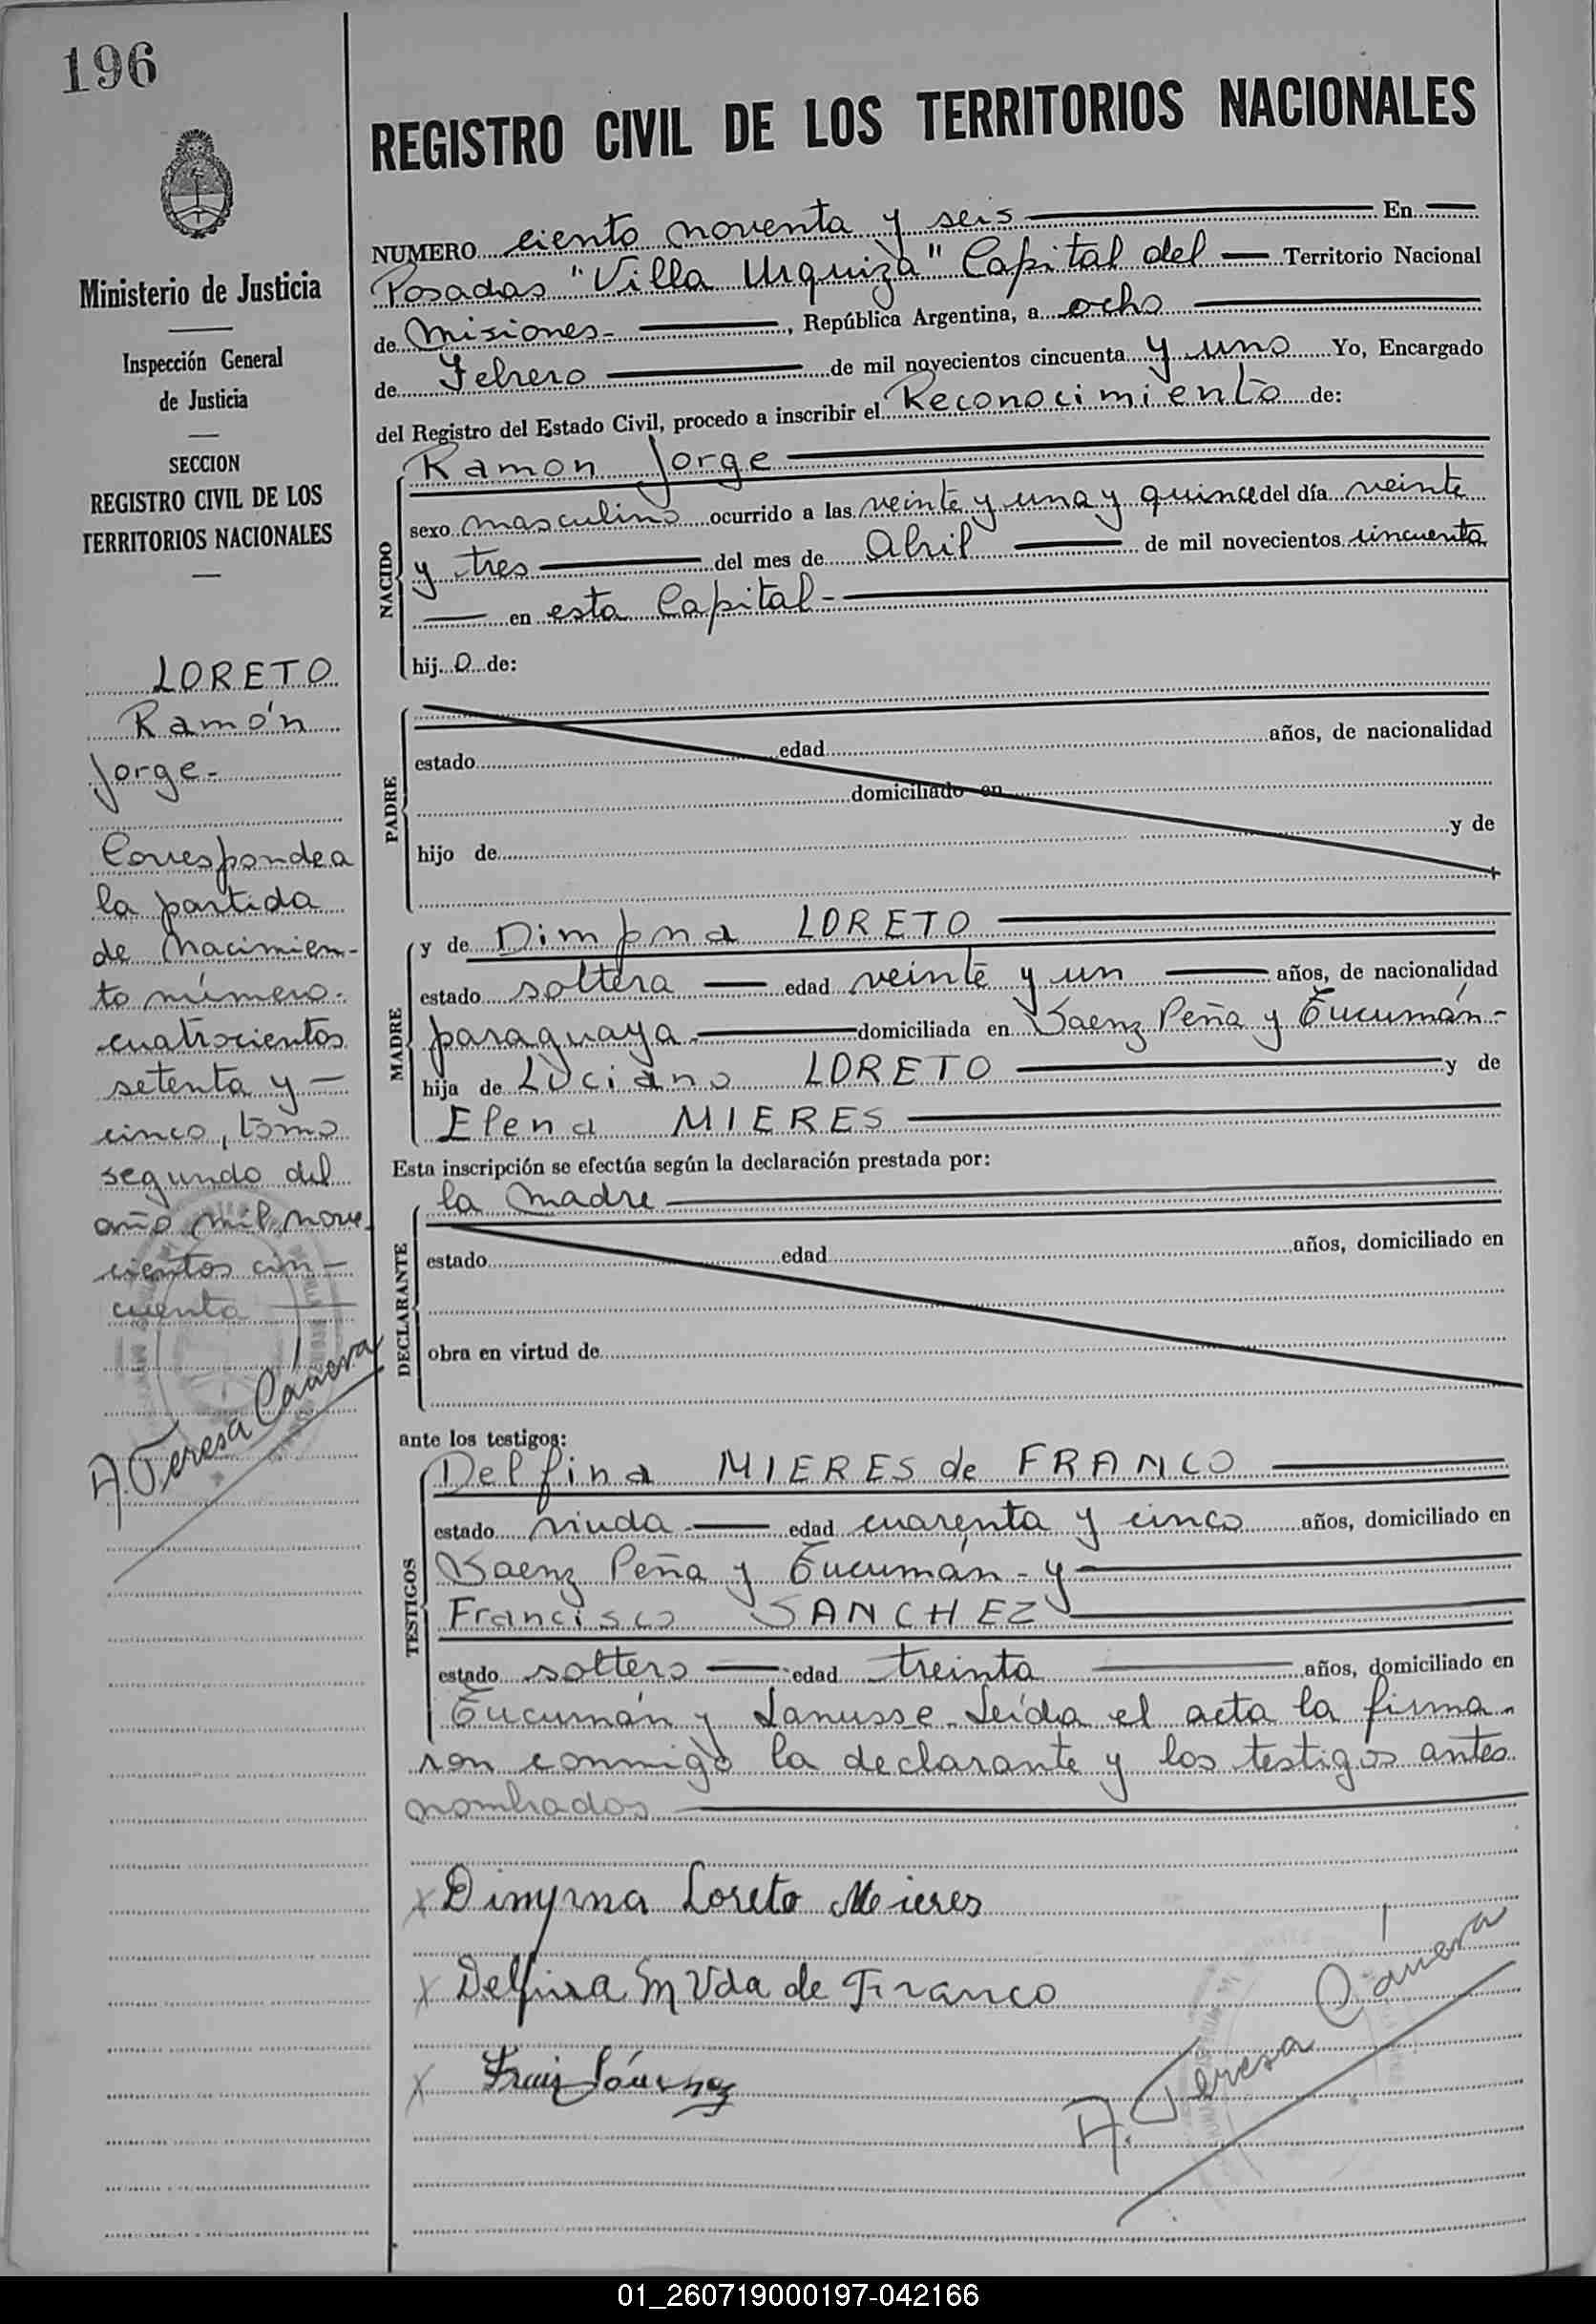 196
Ministerio de Justicia
Inspección General
de Justicia
SECCION
REGISTRO CIVIL DE LOS
TERRITORIOS NACIONALES
LORETO
Ramón
Jorge-
Corresponde a
la partida
de Nacimien-
to número-
cuatrocientos
setenta y —
cinco, tomo
segundo del
año mil nove-
cientos cin-
cuenta —
A. Teresa Cánova
REGISTRO CIVIL DE LOS TERRITORIOS NACIONALES
NUMERO ciento noventa y seis — En —
Posadas "Villa Urquiza" Capital del — Territorio Nacional
de Misiones- —, República Argentina, a ocho —
de Febrero — de mil novecientos cincuenta y uno Yo, Encargado
del Registro del Estado Civil, procedo a inscribir el Reconocimiento de:
NACIDO
Ramon Jorge —
sexo masculino ocurrido a las veinte y una y quince del día veinte
y tres — del mes de Abril — de mil novecientos cincuenta
— en esta Capital- —
hij o de:
PADRE
estado edad años, de nacionalidad
domiciliado en
hijo de y de
MADRE
y de Dimpna LORETO —
estado soltera — edad veinte y un — años, de nacionalidad
paraguaya — domiciliada en Saenz Peña y Tucumán-
hija de Luciano LORETO — y de
Elena MIERES —
Esta inscripción se efectúa según la declaración prestada por:
DECLARANTE
la madre —
estado edad años, domiciliado en
obra en virtud de
ante los testigos:
TESTIGOS
Delfina MIERES de FRANCO —
estado viuda — edad cuarenta y cinco años, domiciliado en
Saenz Peña y Tucumán - y —
Francisco SANCHEZ —
estado soltero — edad treinta — años, domiciliado en
Tucumán y Lanusse- Leída el acta la firma-
ron conmigo la declarante y los testigos antes
nombrados —
x Dimpna Loreto Mieres
x Delfina M Vda de Franco
x Sánchez
A. Teresa Cánova
01_260719000197-042166